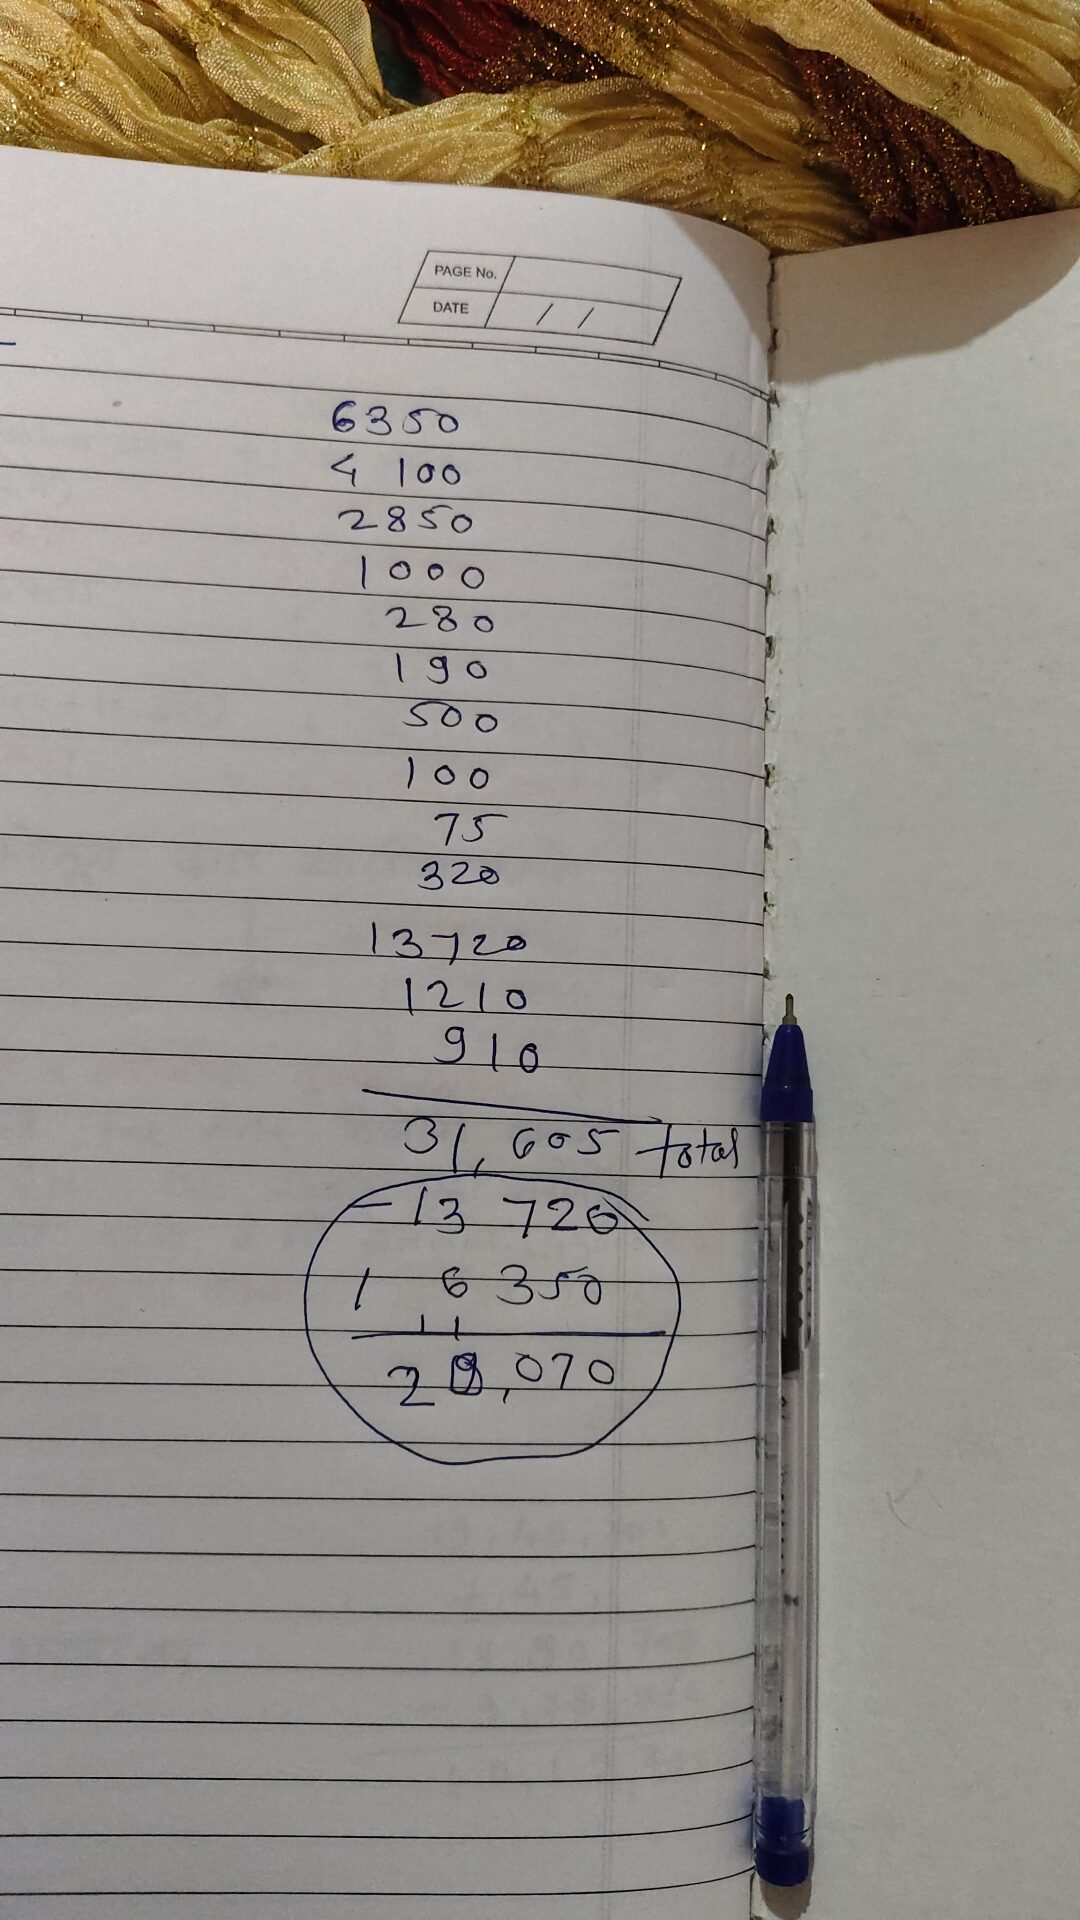 PAGE No.
DATE / /
6350
4100
2850
1000
280
190
500
100
75
320
13720
1210
910
31,605 total
- 13 720
1 6 350
11
,070